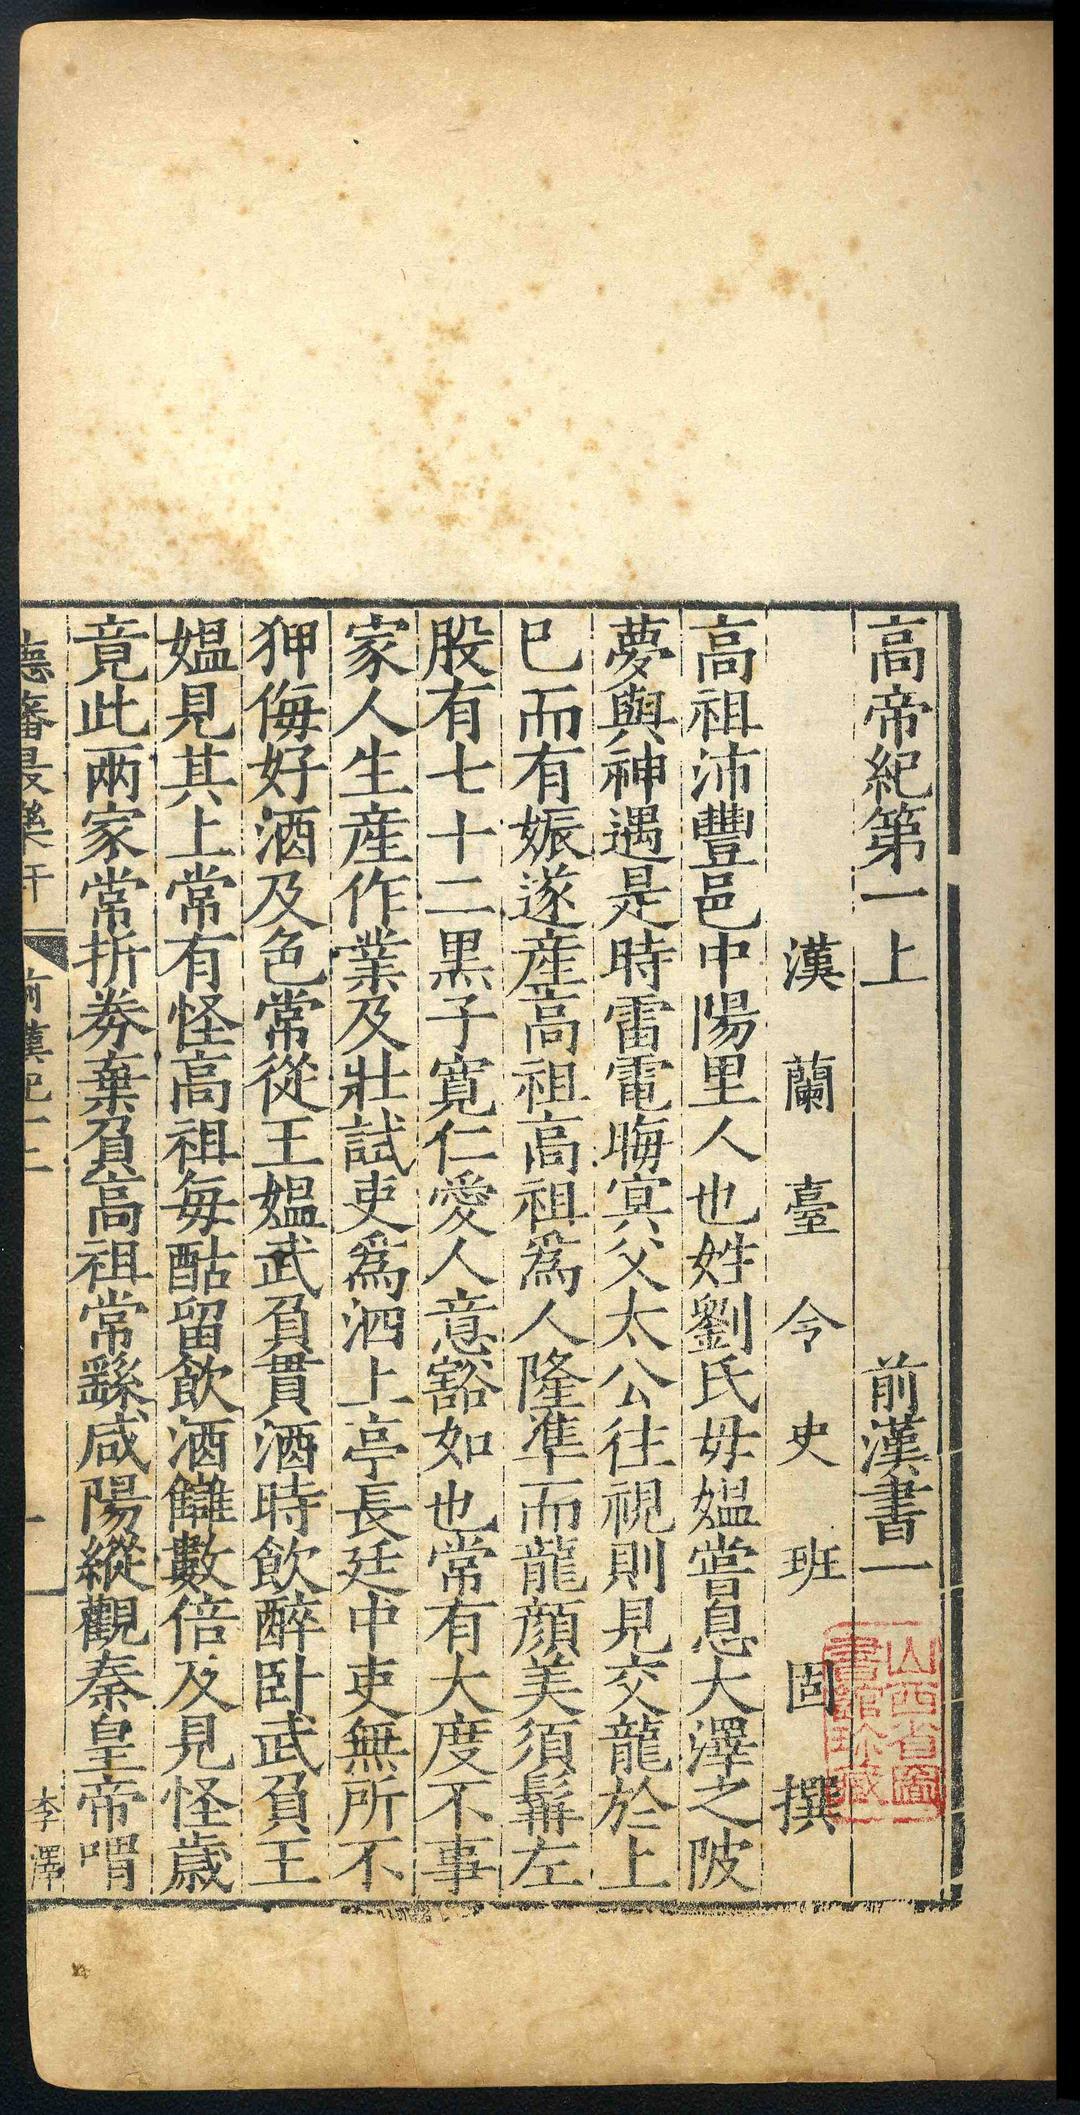 高帝紀第一上 前漢書一
漢蘭臺令史班固撰
高祖沛豐邑中陽里人也姓劉氏毋媪嘗息大澤之陂
夢與神遇是時雷電晦冥父太公往視則見交龍於上
巳而有娠遂產高祖高祖爲人隆準而龍顏美須髯左
股有七十二黑子寬仁愛人意豁如也常有大度不事
家人生產作業及壯試吏爲泗上亭長廷中吏無所不
狎侮好酒及色常從王媪武負貰酒時飲醉卧武負王
媪見其上常有怪高祖每酤留飲酒讎數倍及見怪歲
竟此兩家常折券棄負高祖常繇咸陽縱觀秦皇帝喟
德藩最樂軒
前漢紀一上
一
李澤
山西省圖
書館珍藏